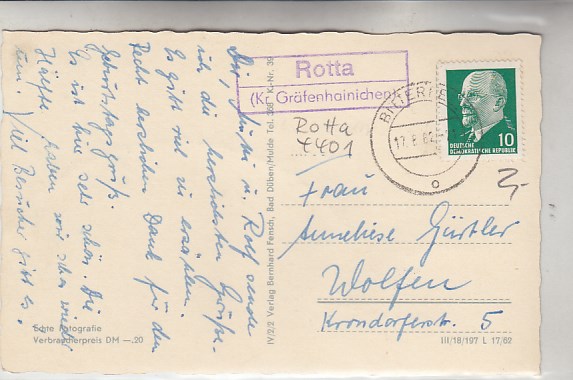 Dir, Günti u. Rolf sende
ich die herzlichsten Grüße.
Es gibt viel zu erzählen.
Recht herzlichen Dank für den
Geburtstagsgruß.
Es ist hier sehr schön. Die
Hälfte haben wir schon wieder
um. Viel Besucher gibt es.
Echte Fotografie
Verbraucherpreis DM —.20
IV/2/2 Verlag Bernhard Fensch, Bad Düben/Mulde Tel. 368 K-Nr. 39
Rotta
(Kr. Gräfenhainichen)
Rotta
4401
BITTERFELD
17.8.62
DEUTSCHE
DEMOKRATISCHE REPUBLIK
10
Frau
Anneliese Gürtler
Wolfen
Krondorferstr. 5
III/18/197 L 17/62